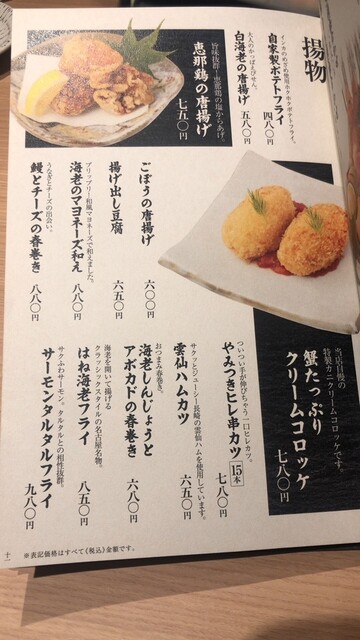 揚物
インカのめざめ使用ホクホクポテトフライ。
自家製ポテトフライ
四八〇円
大人のかっぱえびせん。
白海老の唐揚げ
五八〇円
旨味抜群!恵那鶏の塩からあげ。
恵那鶏の唐揚げ
七五〇円
ごぼうの唐揚げ
六〇〇円
揚げ出し豆腐
六五〇円
プリップリ!和風マヨネーズで和えました。
海老のマヨネーズ和え
八八〇円
うなぎとチーズの出会い。
鰻とチーズの春巻き
八八〇円
当店自慢の
特製カニクリームコロッケです。
蟹たっぷり
クリームコロッケ
七八〇円
ついつい手が伸びちゃう一口ヒレカツ。
やみつきヒレ串カツ
15本
七八〇円
サクッとジューシー長崎の雲仙ハムを使用しています。
雲仙ハムカツ
六五〇円
おつまみ春巻き。
海老しんじょうと
アボカドの春巻き
六八〇円
海老を開いて揚げる
クラッシックスタイルの名古屋名物。
はね海老フライ
八五〇円
サクふわサーモン。タルタルとの相性抜群。
サーモンタルタルフライ
九八〇円
※表記価格はすべて〈税込〉金額です。
十一